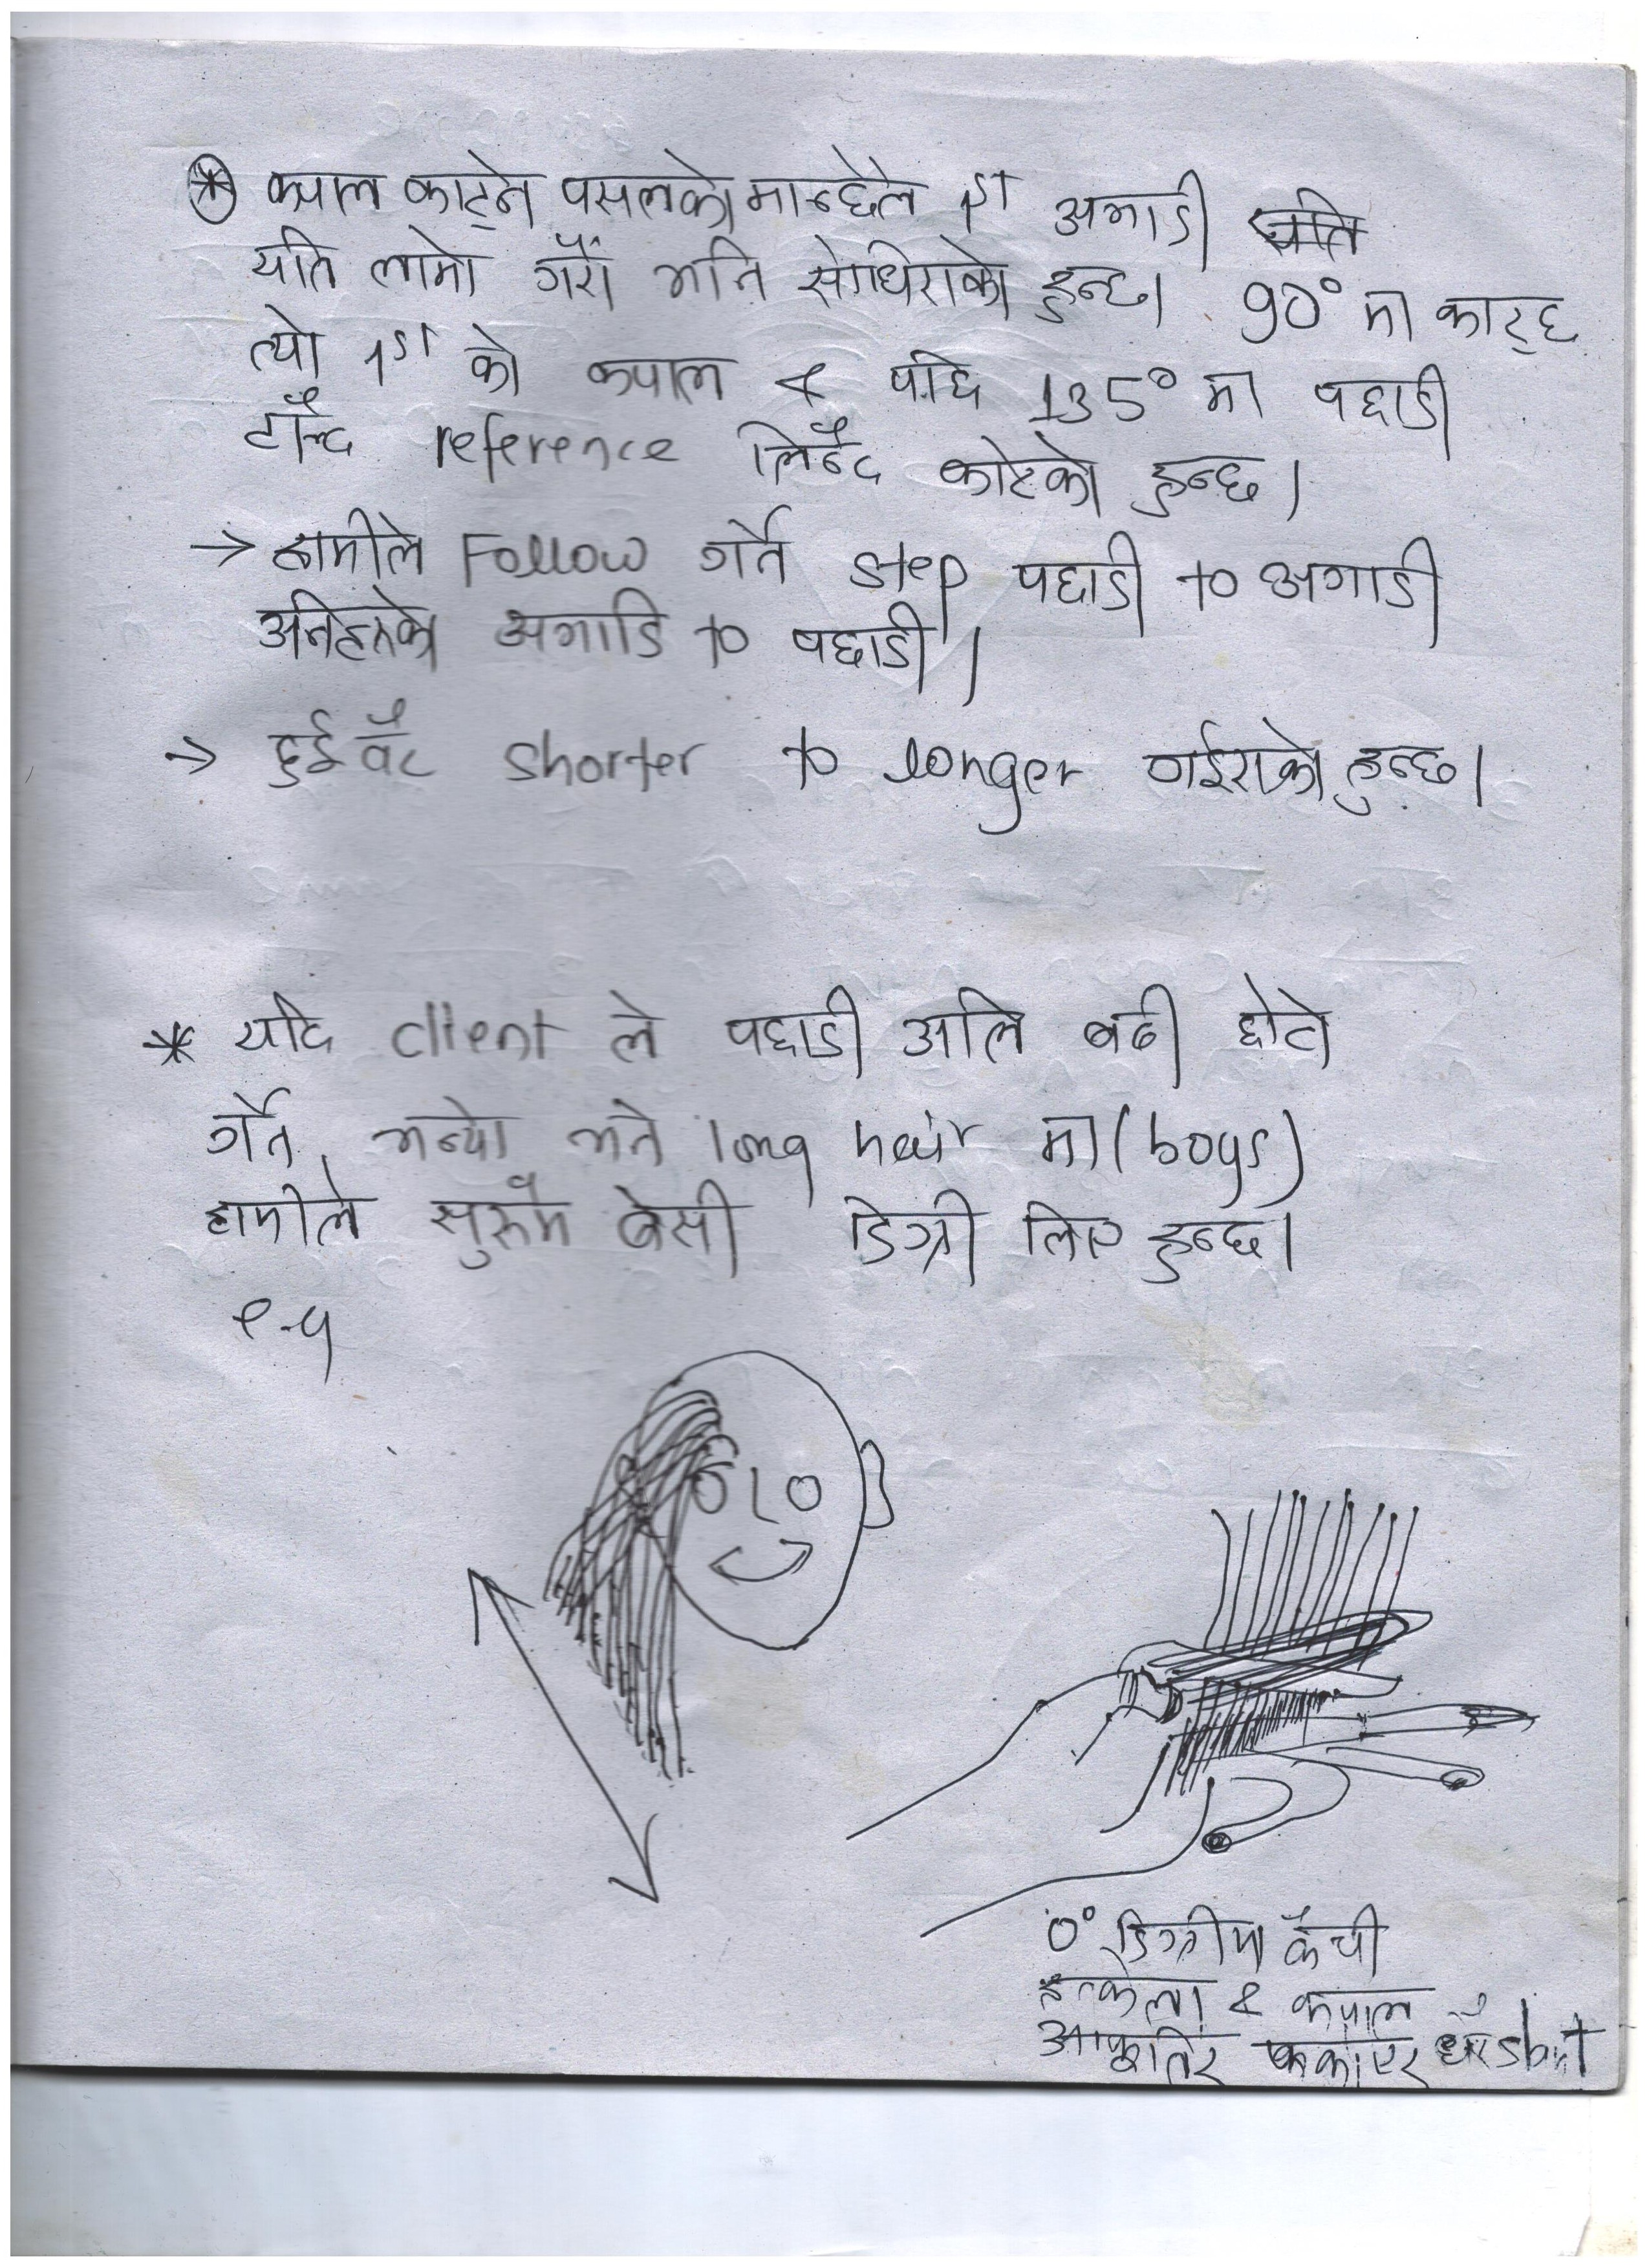 * कपाल काट्ने पसलको मान्छेले 1st अगाडी
यति लामो गरौं भनि सोधिराको हुन्छ। 90° मा काट्छ
त्यो 1st को कपाल & पछि 135° मा पछाडी
टाँल्दै reference लिँदै काटेको हुन्छ।
→ हामीले Follow गर्ने step पछाडी to अगाडी
अनिहरुको अगाडि to पछाडी।
→ दुईवटै shorter to longer गईराको हुन्छ।
* यदि client ले पछाडी अलि बढी छोटो
गर्ने भन्यो भने long hair मा (boys)
हामीले सुरुमै बेसी डिग्री लिए हुन्छ।
e.g
0° डिग्रीमा कैंची
हत्केला & कपाल
आफूतिर फर्काएर